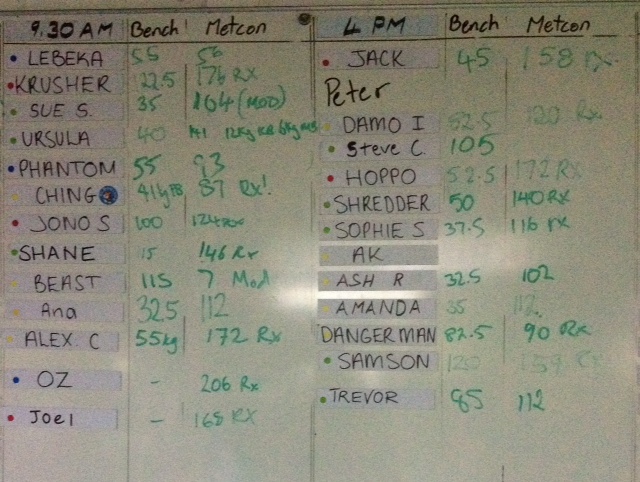 9.30 AM Bench Metcon
LEBEKA 55 56
KRUSHER 122.5 176 RX
SUE S. 35 104 (MOD)
URSULA 40 141 12kg KB
PHANTOM 55 93
CHING 41kg PB 87 RX!
JONO S 100 124 RX
SHANE 15 146 Rx
BEAST 115 7 Mod
Ana 32.5 112
ALEX C 55kg 172 Rx
OZ - 206 Rx
Joel - 168 RX
4 PM Bench Metcon
JACK 45 158 rx
Peter
DAMO I 52.5 120 Rx
Steve C. 105
HOPPO 52.5 172 RX
SHREDDER 50 140 RX
SOPHIE S 37.5 116 rx
AK
ASH R 32.5 102
AMANDA 35 112
DANGERMAN 82.5 90 Rx
SAMSON 120 159 Rx
TREVOR 85 112